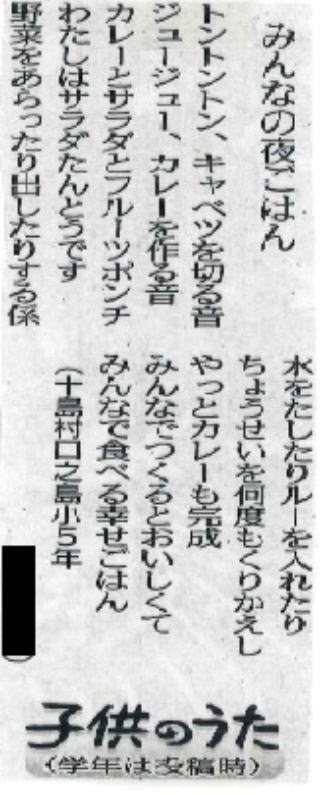 みんなの夜ごはん
トントントン、キャベツを切る音
ジュージュー、カレーを作る音
カレーとサラダとフルーツポンチ
わたしはサラダたんとうです
野菜をあらったり出したりする係
水をたしたりルーを入れたり
ちょうせいを何度もくりかえし
やっとカレーも完成
みんなでつくるとおいしくて
みんなで食べる幸せごはん
(十島村口之島小5年
)
子供のうた
(学年は投稿時)